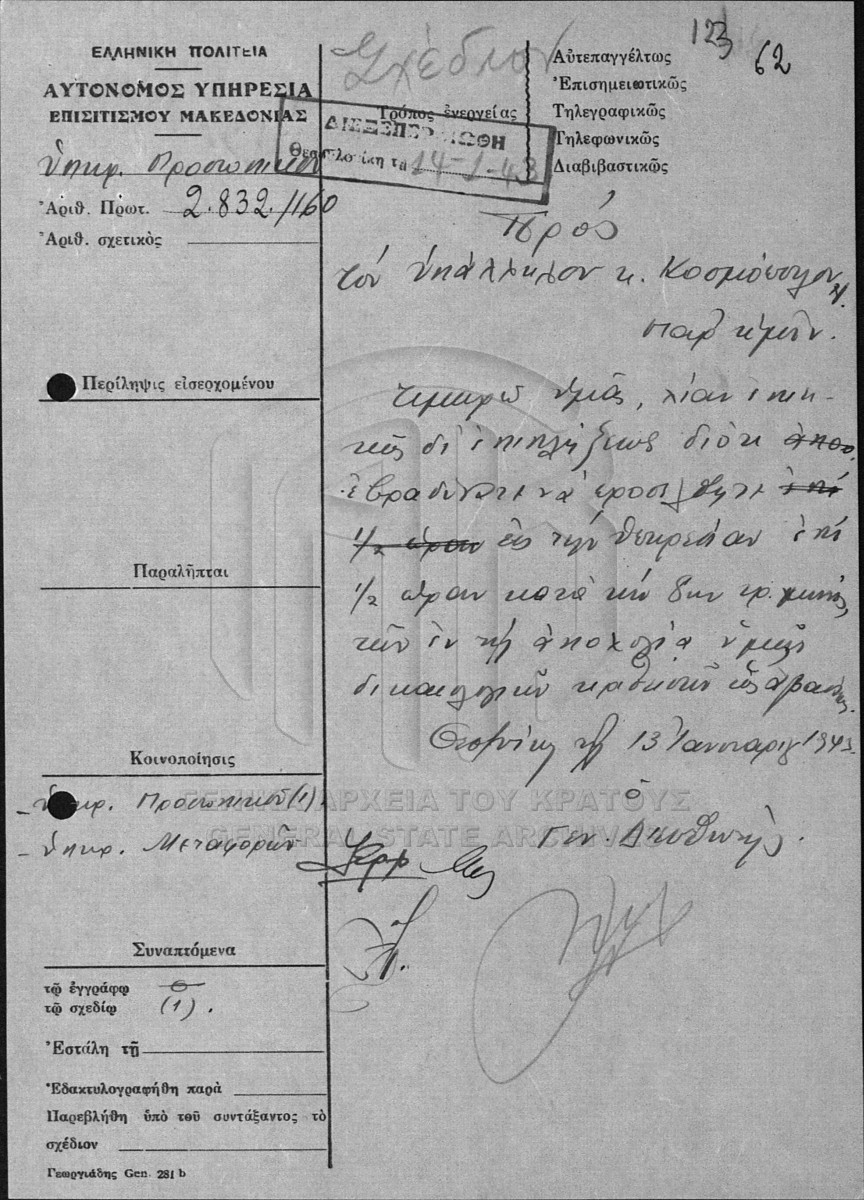 123
62
ΕΛΛΗΝΙΚΗ ΠΟΛΙΤΕΙΑ
ΑΥΤΟΝΟΜΟΣ ΥΠΗΡΕΣΙΑ
ΕΠΙΣΙΤΙΣΜΟΥ ΜΑΚΕΔΟΝΙΑΣ
Ὑπηρ. Προσωπικοῦ
Ἀριθ. Πρωτ. 2.832./160
Ἀριθ. σχετικὸς
Περίληψις εἰσερχομένου
Παραλῆπται
Κοινοποίησις
- Ὑπηρ. Προσωπικοῦ (1)
- Ὑπηρ. Μεταφορῶν
Συναπτόμενα
τῷ ἐγγράφῳ
τῷ σχεδίῳ (1).
Ἐστάλη τῇ
Ἐδακτυλογραφήθη παρὰ
Παρεβλήθη ὑπὸ τοῦ συντάξαντος τὸ
σχέδιον
Γεωργιάδης Gen. 281 b
Σχέδιον
Τρόπος ἐνεργείας
Αὐτεπαγγέλτως
Ἐπισημειωτικῶς
Τηλεγραφικῶς
Τηλεφωνικῶς
Διαβιβαστικῶς
ΔΙΕΞΕΠΕΡΑΙΩΘΗ
Θεσσαλονίκη τῇ 14-1-43
Πρός
τόν ὑπάλληλον κ.
παρ' ἡμῖν.
Τιμωρῶ ὑμᾶς, λίαν ἐπιει-
κῶς δι' ἐπιπλήξεως διότι
ἐβραδύνατε νὰ προσέλθητε
εἰς τὴν ὑπηρεσίαν ἐπὶ
1/2 ὥραν κατὰ τὴν 8ην τρ. μηνός,
τῶν ἐν τῇ ἀπολογίᾳ ὑμῶν
δικαιολογιῶν κριθεισῶν ὡς ἀβασίμων.
Θεσ/νίκη τῇ 13 Ἰανουαρίου 1943
ὁ
Γεν. Διευθυντής.
ΓΕΝΙΚΑ ΑΡΧΕΙΑ ΤΟΥ ΚΡΑΤΟΥΣ
GENERAL STATE ARCHIVES